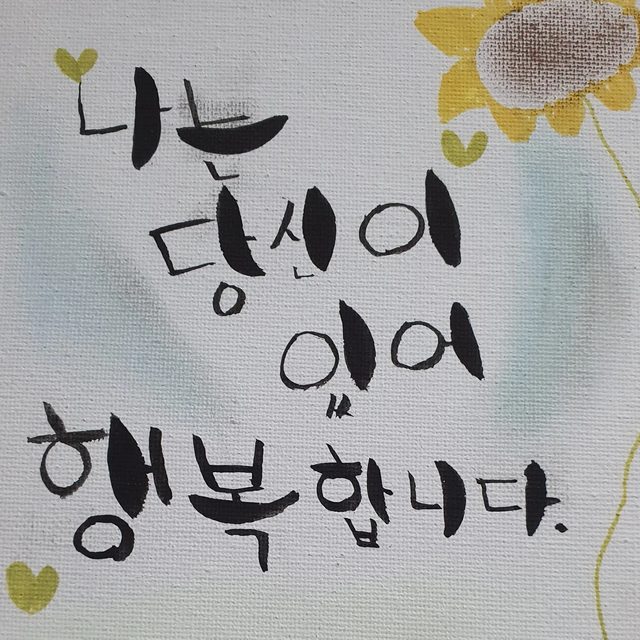 나는
당신이
있어
행복합니다.